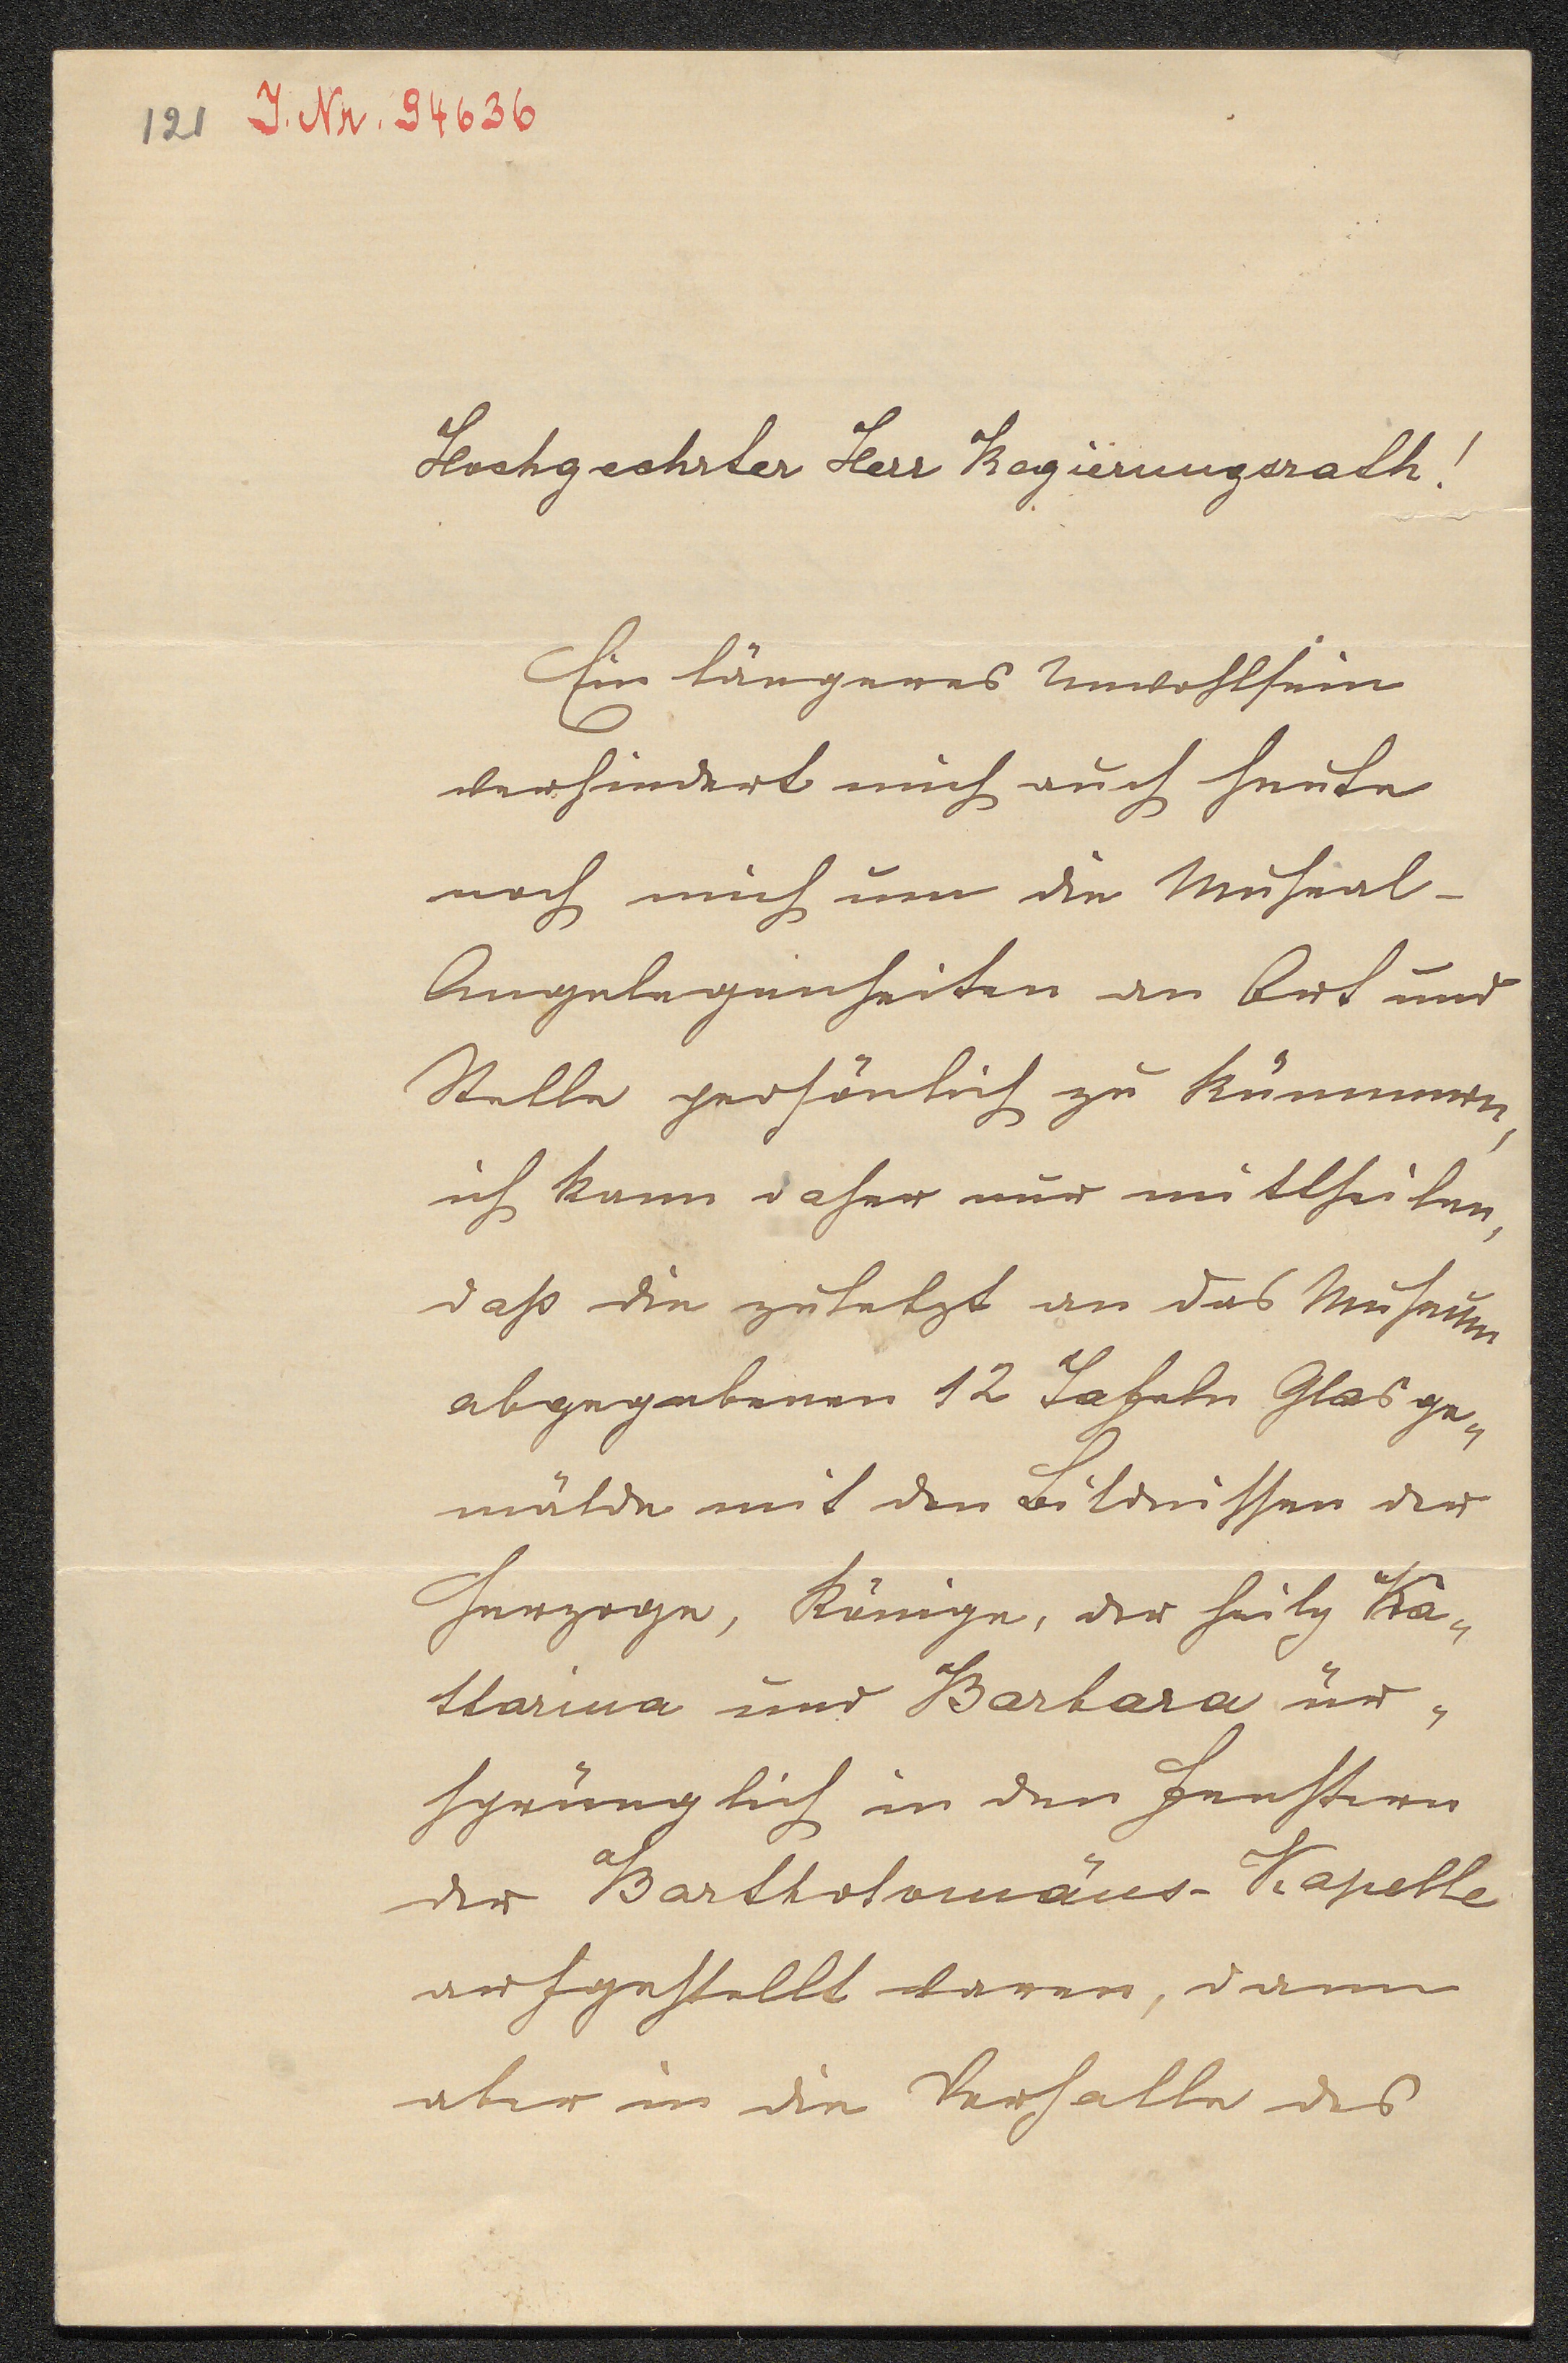 121 J. Nr. 94636
Hochgeehrter Herr Regierungsrath!
Ein längeres Unwohlsein
verhindert mich auch heute
noch mich um die Museal-
Angelegenheiten an Ort und
Stelle persönlich zu kümmern,
ich kann daher nur mittheilen,
daß die zuletzt an das Museum
abgegebenen 12 Tafeln Glasge„
mälde mit den Bildnissen der
Herzoge, Könige, der heilg Ka„
ttarina und Barbara ur„
sprünglich in den Fenstern
der Bartholomäus-Kapelle
aufgestellt waren, dann
aber in die Vorhalle des